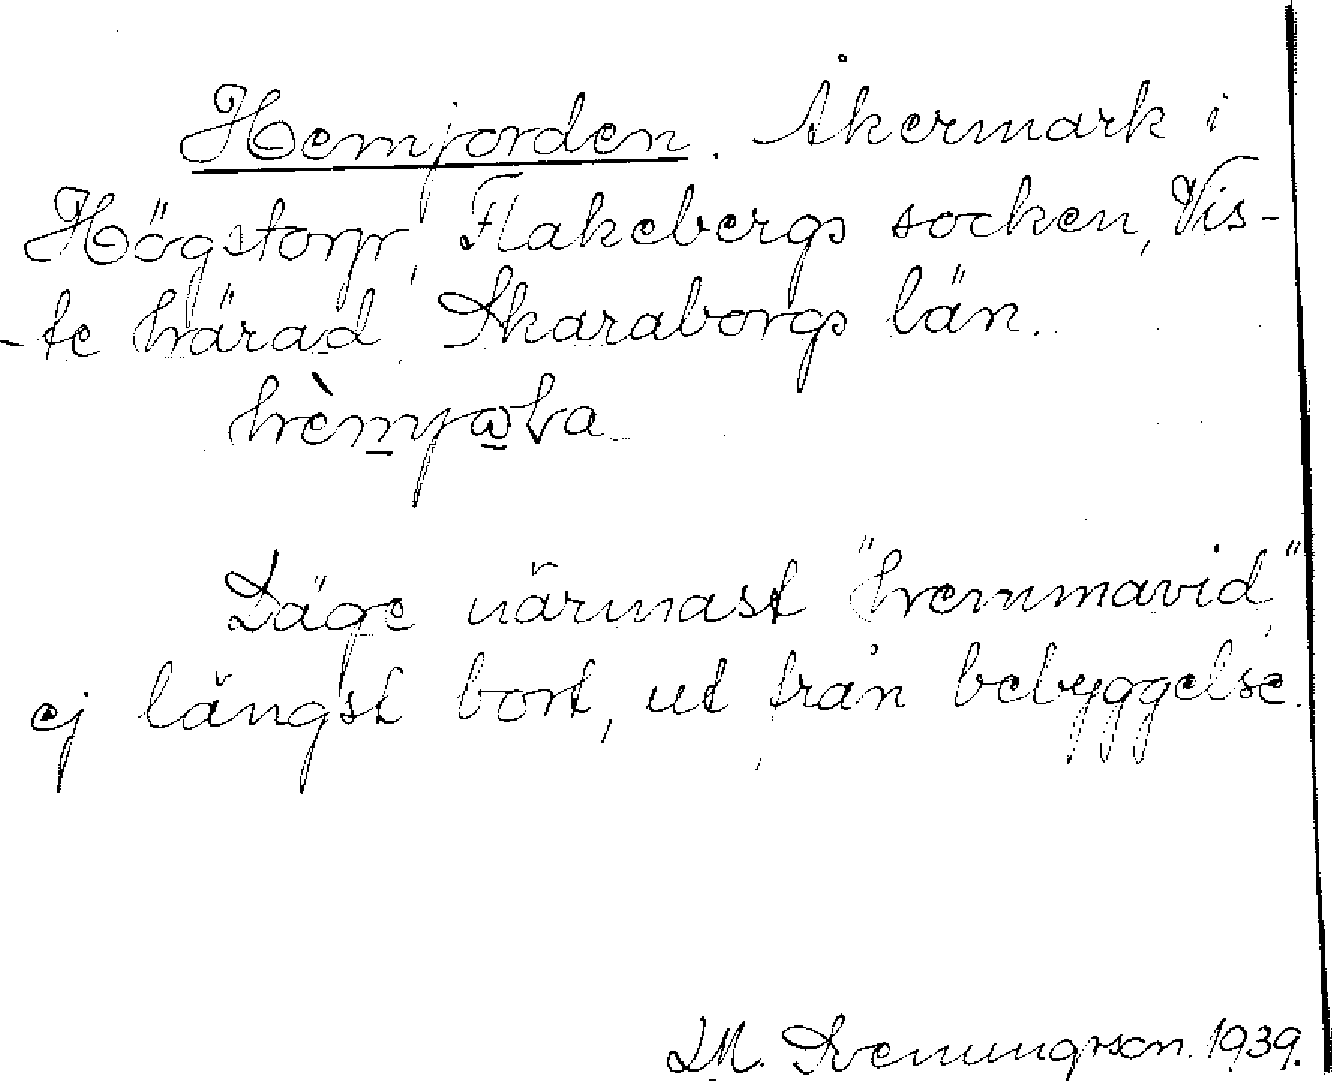 Hemjorden. Åkermark i
Högstorp, Flakebergs socken, Vis-
-te härad, Skaraborgs län.
Läge närmast "hemmavid",
ej längst bort, ut från bebyggelse.
1939.